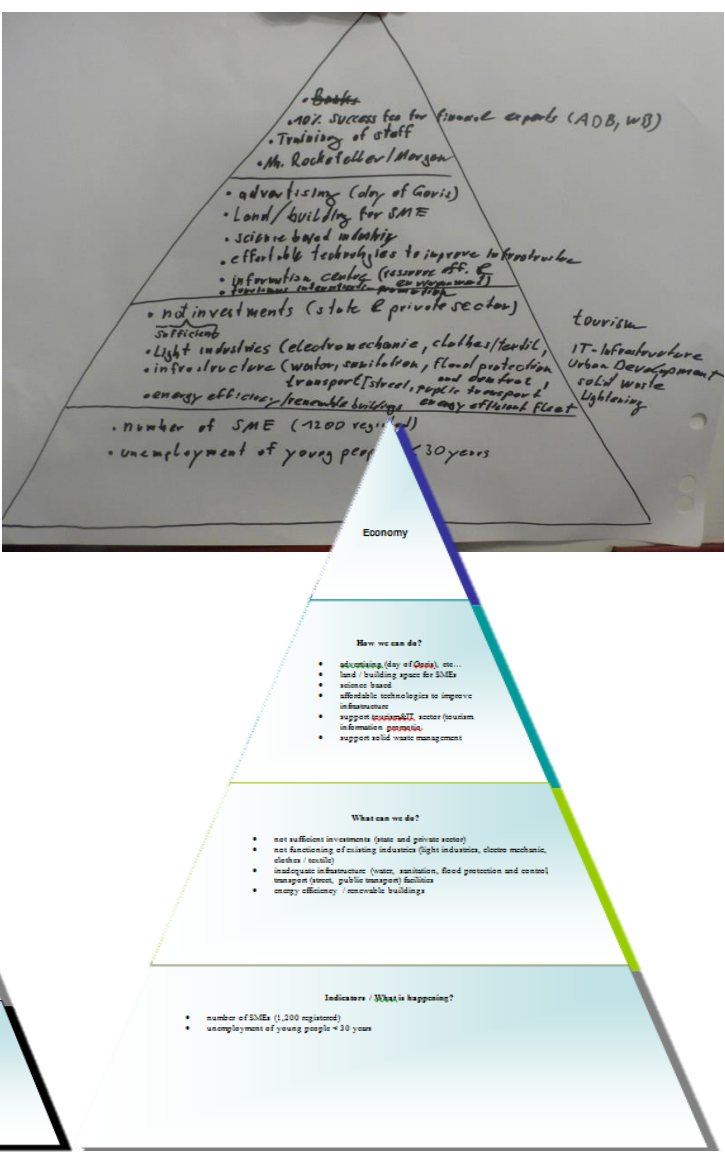 • Books
• 10% success fee for financial experts (ADB, WB)
• Training of staff
• Mr. Rockefeller/Morgan
• advertising (day of Goris)
• Land/building for SME
• science based industry
• effortable technologies to improve infrastructure
• information centre (resource eff. & environment)
• tourismus information promotion
• not investments (state & private sector)
sufficient
• Light industries (electromechanic, clothes/textil,
• infrastructure (water, sanitation, flood protection and control,
transport [street, public transport
• energy efficiency/renewable buildings energy efficient fleet
tourism
IT-Infrastructure
Urban Development
solid waste
Lightening
• number of SME (1200 regi
• unemployment of young peop < 30 years
Economy
How we can do?
• advertising (day of Goris), etc...
• land / building space for SMEs
• science based
• affordable technologies to improve
infrastructure
• support tourism&IT sector (tourism
information promotio
• support solid waste management
What can we do?
• not sufficient investments (state and private sector)
• not functioning of existing industries (light industries, electro mechanic,
clothes / textile)
• inadequate infrastructure (water, sanitation, flood protection and control,
transport (street, public transport) facilities
• energy efficiency / renewable buildings
Indicators / What is happening?
• number of SMEs (1,200 registered)
• unemployment of young people < 30 years